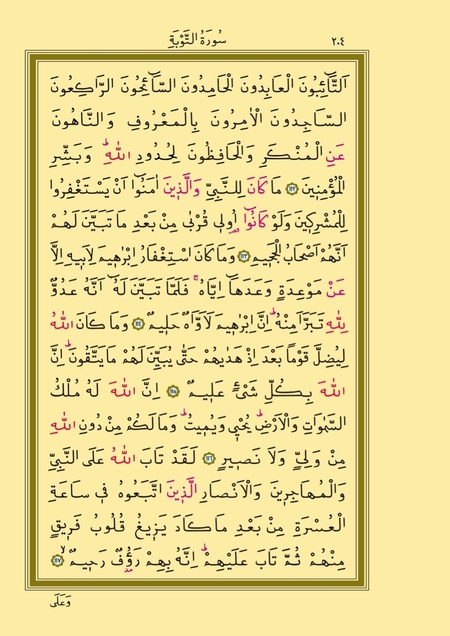 سُورَةُ التَّوْبَةِ ٢٠٤
اَلتَّٓائِبُونَ الْعَابِدُونَ الْحَامِدُونَ السَّٓائِحُونَ الرَّاكِعُونَ
السَّاجِدُونَ الْاٰمِرُونَ بِالْمَعْرُوفِ وَالنَّاهُونَ
عَنِ الْمُنْكَرِ وَالْحَافِظُونَ لِحُدُودِ اللّٰهِۜ وَبَشِّرِ
الْمُؤْمِن۪ينَ ﴿١١٢﴾ مَا كَانَ لِلنَّبِيِّ وَالَّذ۪ينَ اٰمَنُٓوا اَنْ يَسْتَغْفِرُوا
لِلْمُشْرِك۪ينَ وَلَوْ كَانُٓوا اُو۬ل۪ي قُرْبٰى مِنْ بَعْدِ مَا تَبَيَّنَ لَهُمْ
اَنَّهُمْ اَصْحَابُ الْجَح۪يمِ ﴿١١٣﴾ وَمَا كَانَ اسْتِغْفَارُ اِبْرٰه۪يمَ لِاَب۪يهِ اِلَّا
عَنْ مَوْعِدَةٍ وَعَدَهَٓا اِيَّاهُۚ فَلَمَّا تَبَيَّنَ لَهُٓ اَنَّهُ عَدُوٌّ
لِلّٰهِ تَبَرَّاَ مِنْهُۜ اِنَّ اِبْرٰه۪يمَ لَاَوَّاهٌ حَل۪يمٌ ﴿١١٤﴾ وَمَا كَانَ اللّٰهُ
لِيُضِلَّ قَوْمًا بَعْدَ اِذْ هَدٰيهُمْ حَتّٰى يُبَيِّنَ لَهُمْ مَا يَتَّقُونَۜ اِنَّ
اللّٰهَ بِكُلِّ شَيْءٍ عَل۪يمٌ ﴿١١٥﴾ اِنَّ اللّٰهَ لَهُ مُلْكُ
السَّمٰوَاتِ وَالْاَرْضِۜ يُحْي۪ وَيُم۪يتُۜ وَمَا لَكُمْ مِنْ دُونِ اللّٰهِ
مِنْ وَلِيٍّ وَلَا نَص۪يرٍ ﴿١١٦﴾ لَقَدْ تَابَ اللّٰهُ عَلَى النَّبِيِّ
وَالْمُهَاجِر۪ينَ وَالْاَنْصَارِ الَّذ۪ينَ اتَّبَعُوهُ ف۪ي سَاعَةِ
الْعُسْرَةِ مِنْ بَعْدِ مَا كَادَ يَز۪يغُ قُلُوبُ فَر۪يقٍ
مِنْهُمْ ثُمَّ تَابَ عَلَيْهِمْۜ اِنَّهُ بِهِمْ رَؤُ۫فٌ رَح۪يمٌۙ ﴿١١٧﴾
وَعَلَى